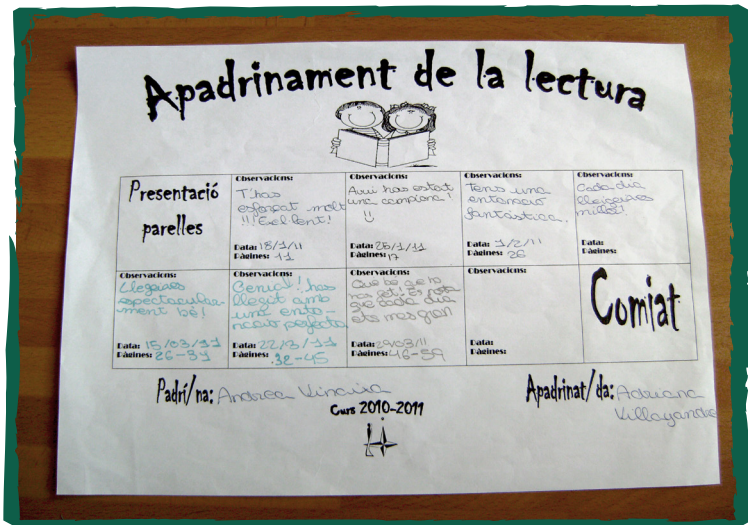 Apadrinament de la lectura
Presentació
parelles
Observacions:
T'has
esforçat molt
!!! Excel·lent!
Data: 18/1/11
Pàgines: 11
Observacions:
Avui has estat
una campiona!
Data: 25/1/11
Pàgines: 17
Observacions:
Tens una
entonació
fantàstica.
Data: 1/2/11
Pàgines: 26
Observacions:
Cada dia
llegeixes
millor!
Data:
Pàgines:
Observacions:
Llegeixes
espectacular-
ment bé!
Data: 15/03/11
Pàgines: 26-31
Observacions:
Genial! has
llegit amb
una ento-
nació perfecta
Data: 22/3/11
Pàgines: 32-45
Observacions:
Que bé que ho
has fet! Es nota
que cada dia
ets més gran
Data: 29/03/11
Pàgines: 46-59
Observacions:
Data:
Pàgines:
Comiat
Padrí/na: Andrea
Apadrinat/da: Adriana
Villayandre
Curs 2010-2011